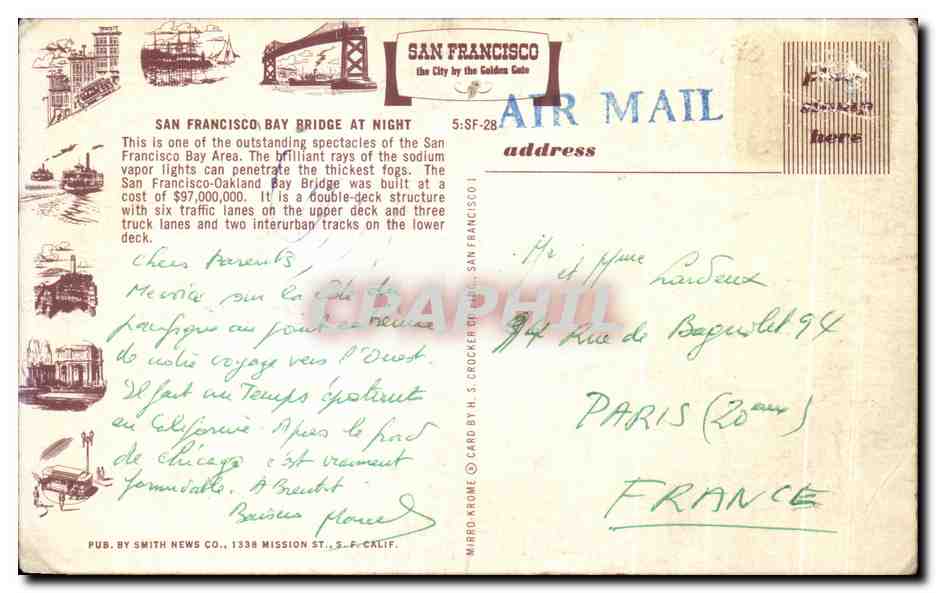 SAN FRANCISCO
the City by the Golden Gate
SAN FRANCISCO BAY BRIDGE AT NIGHT
5:SF-28
This is one of the outstanding spectacles of the San
Francisco Bay Area. The brilliant rays of the sodium
vapor lights can penetrate the thickest fogs. The
San Francisco-Oakland Bay Bridge was built at a
cost of $97,000,000. It is a double-deck structure
with six traffic lanes on the upper deck and three
truck lanes and two interurban tracks on the lower
deck.
Chers Parents
sur la côte du
pacifique au point extrême
de notre voyage vers l'Ouest.
Il fait un Temps épatant
en Californie. Après le froid
de Chicago c'est vraiment
formidable. A Bientôt
Baisers
PUB. BY SMITH NEWS CO., 1338 MISSION ST., S. F. CALIF.
MIRRO-KROME ® CARD BY H. S. CROCKER CO., INC., SAN FRANCISCO 1
AIR MAIL
address
stamp
here
Mr et Mme
Lardeux
94 Rue de Bagnolet 94
PARIS (20eme)
FRANCE
CRAPHIL